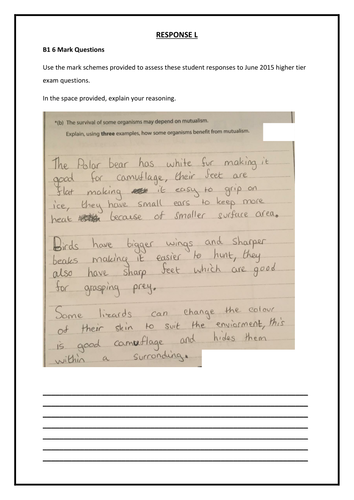 RESPONSE L
B1 6 Mark Questions
Use the mark schemes provided to assess these student responses to June 2015 higher tier
exam questions.
In the space provided, explain your reasoning.
*(b) The survival of some organisms may depend on mutualism.
Explain, using three examples, how some organisms benefit from mutualism.
The Polar bear has white fur making it
good for camuflage, their feet are
flat making it easy to grip on
ice, they have small ears to keep more
heat because of smaller surface area.
Birds have bigger wings and sharper
beaks making it easier to hunt, they
also have sharp feet which are good
for grasping prey.
Some lizards can change the colour
of their skin to suit the enviorment, this
is good camuflage and hides them
within a surronding.